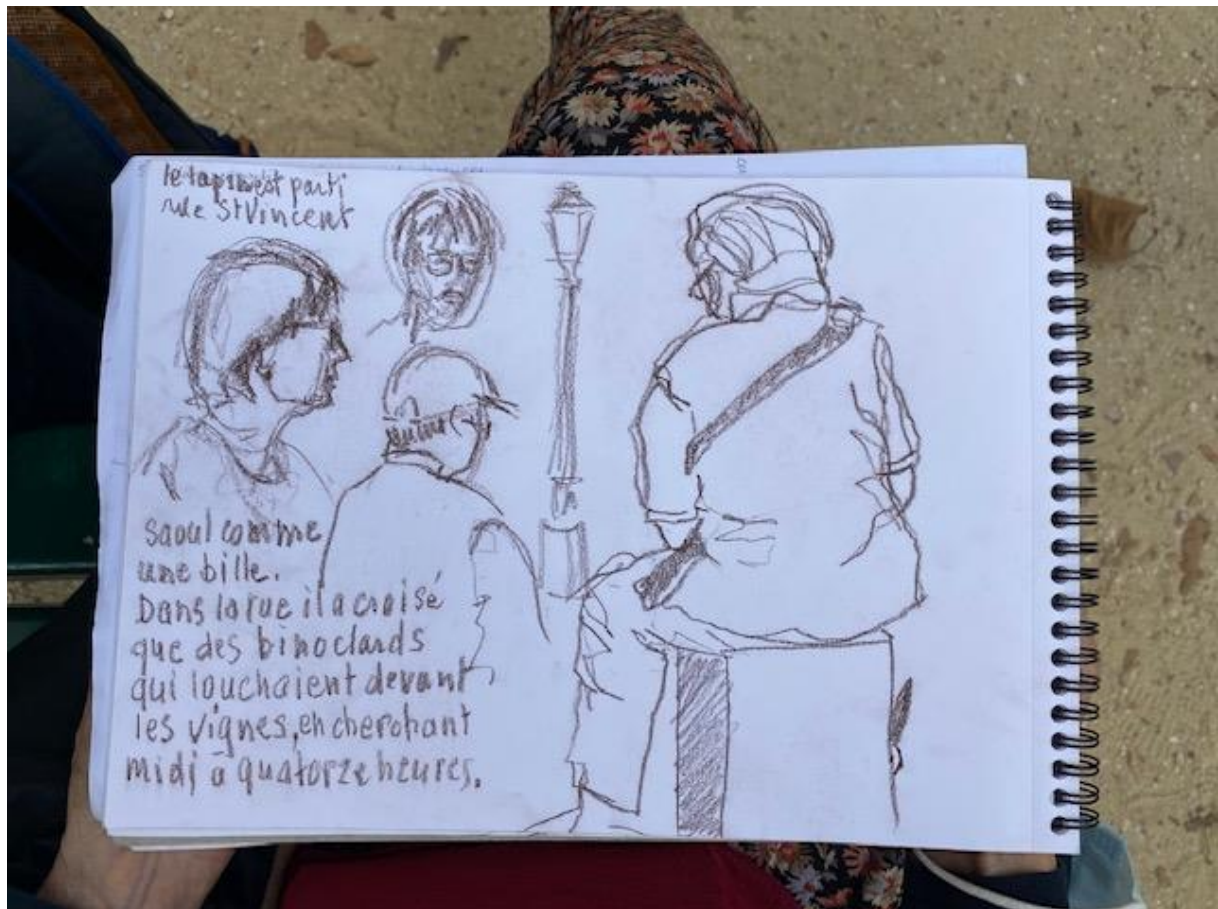 le lapin est parti
rue St Vincent
saoul comme
une bille.
Dans la rue il a croisé
que des binoclards
qui louchaient devant
les vignes, en cherchant
midi à quatorze heures.